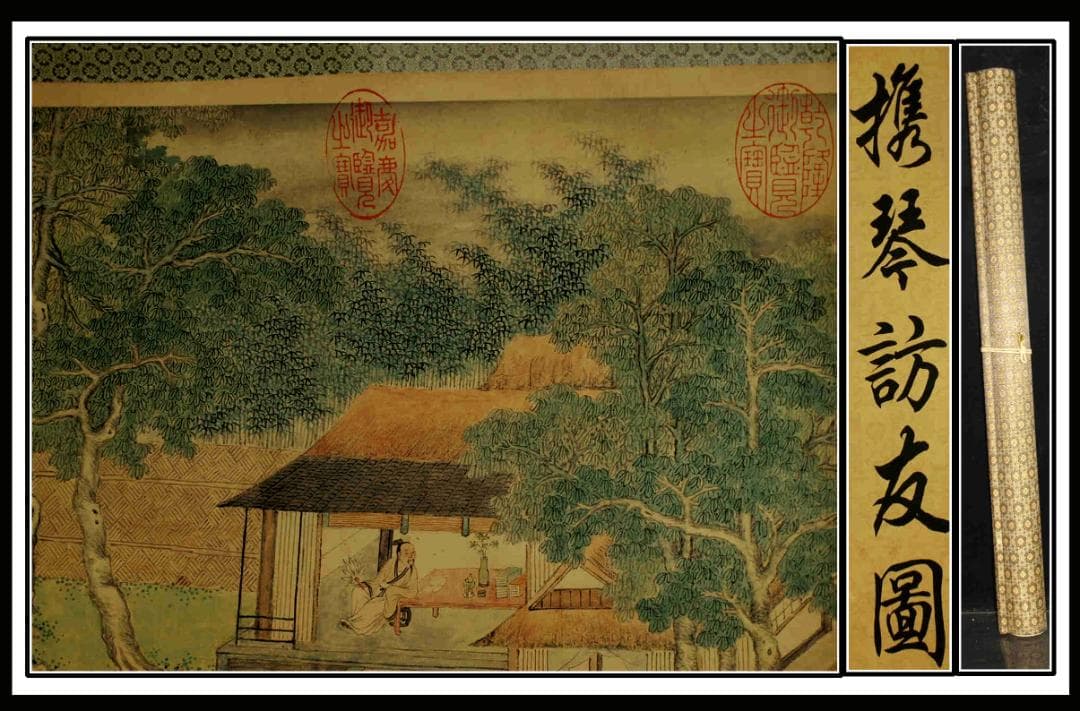 嘉慶
御覽
之寶
乾隆
御覽
之寶
携琴訪友圖